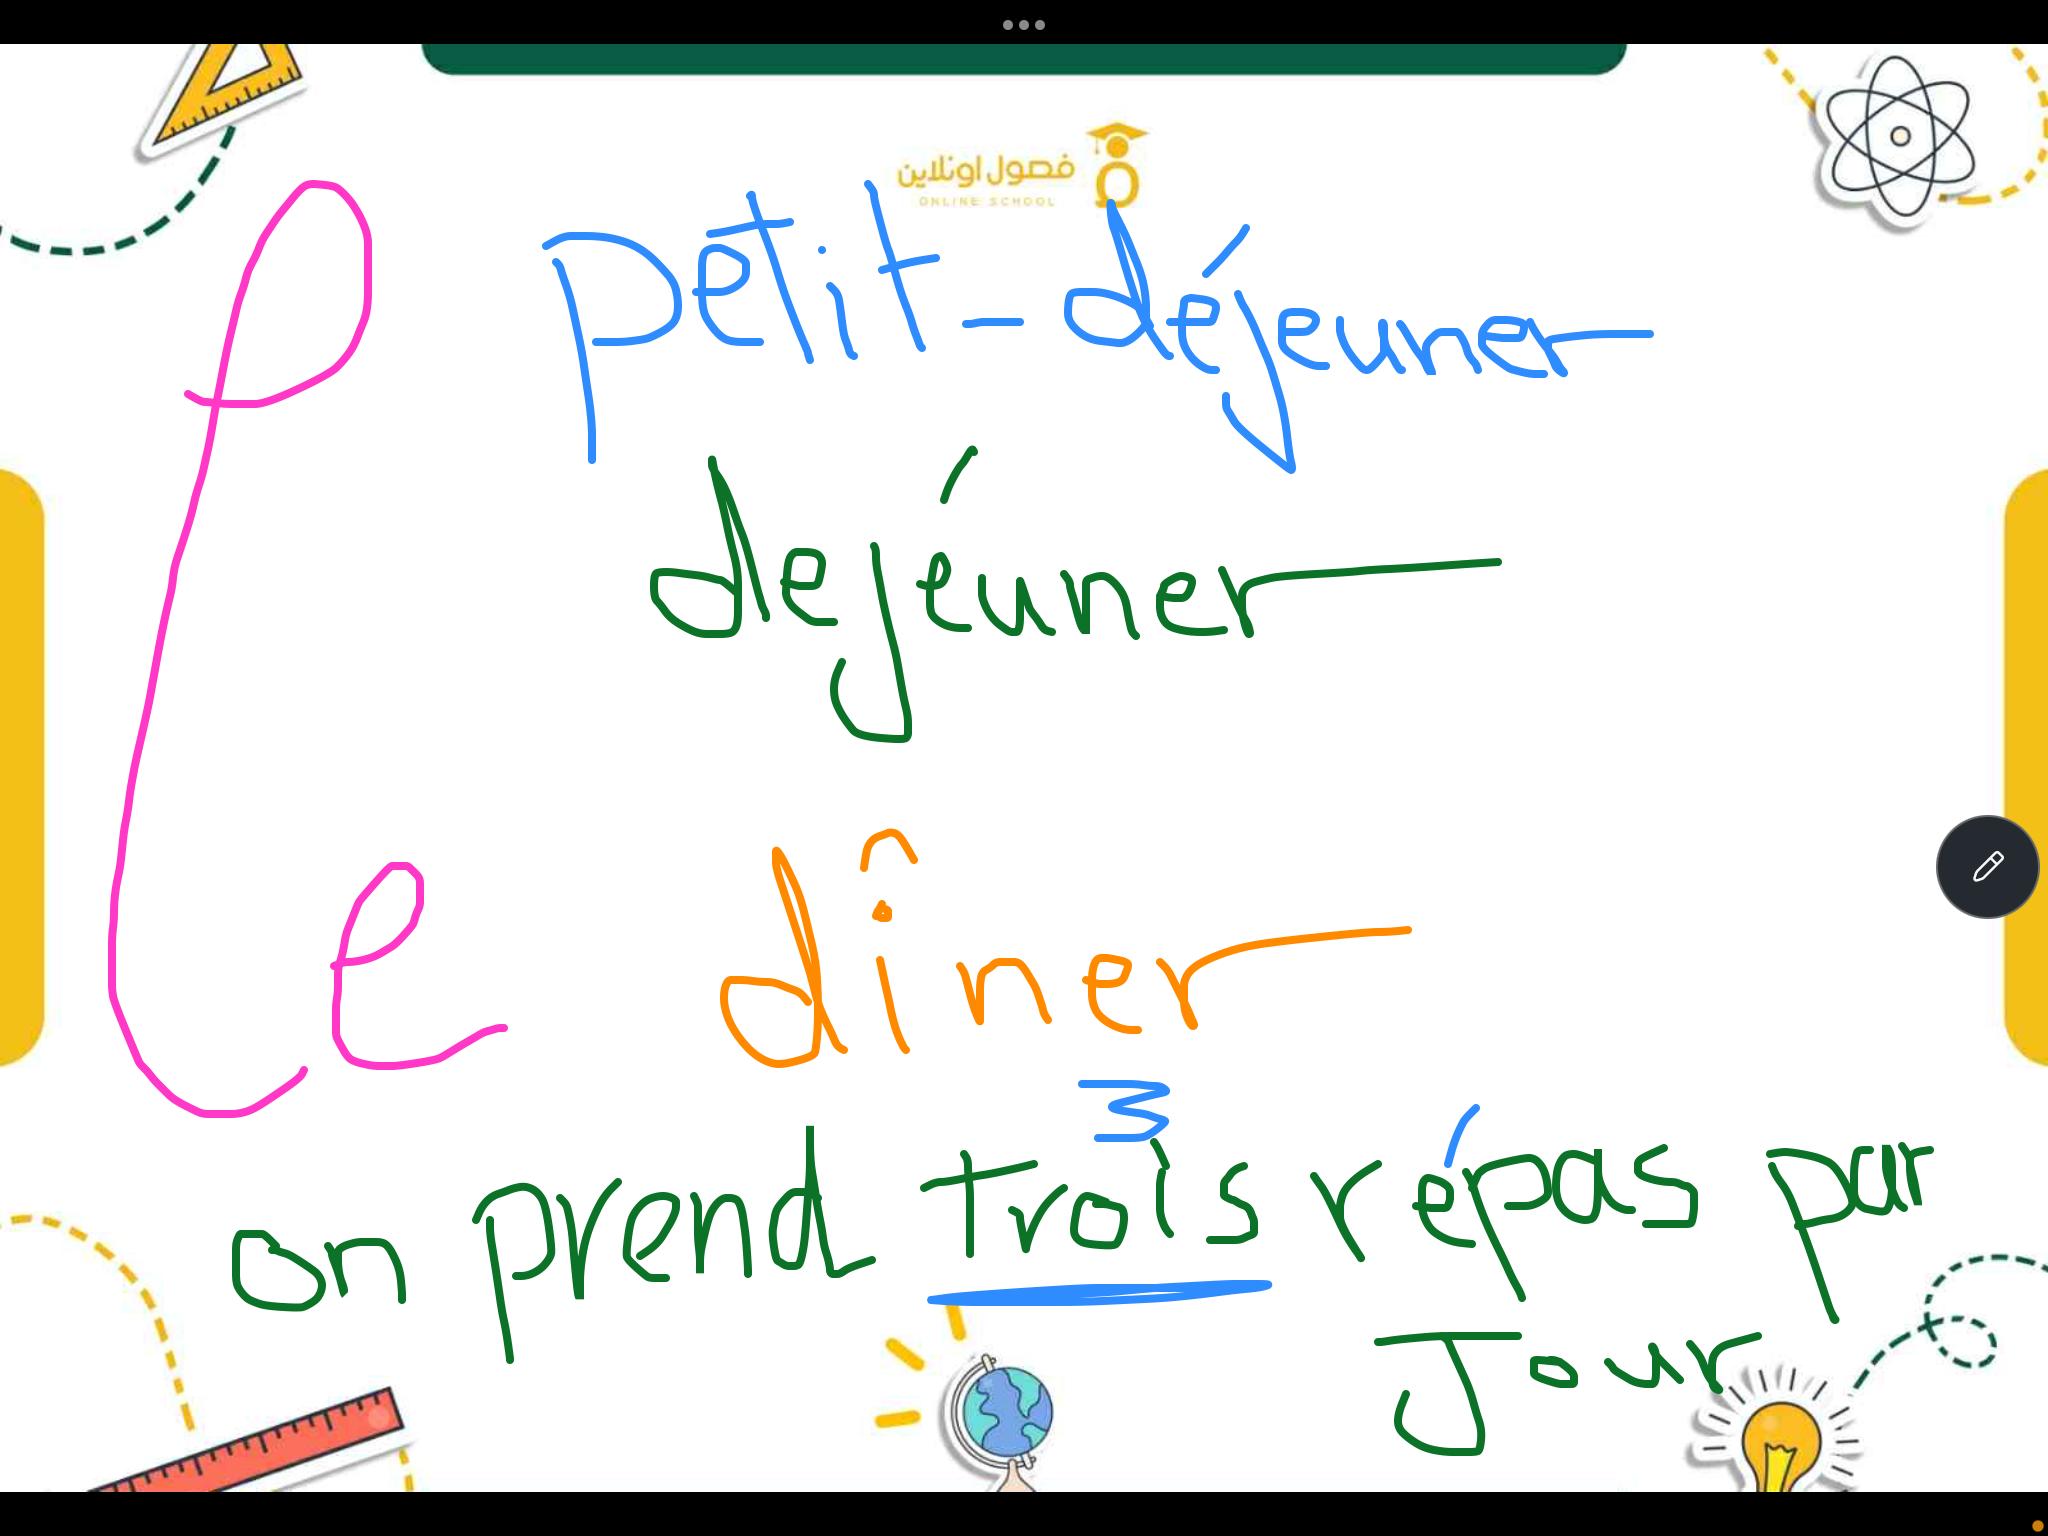 فصول اونلاين
ONLINE SCHOOL
petit-déjeuner
dejéuner
Le
dîner
3
on prend trois répas par
Jour